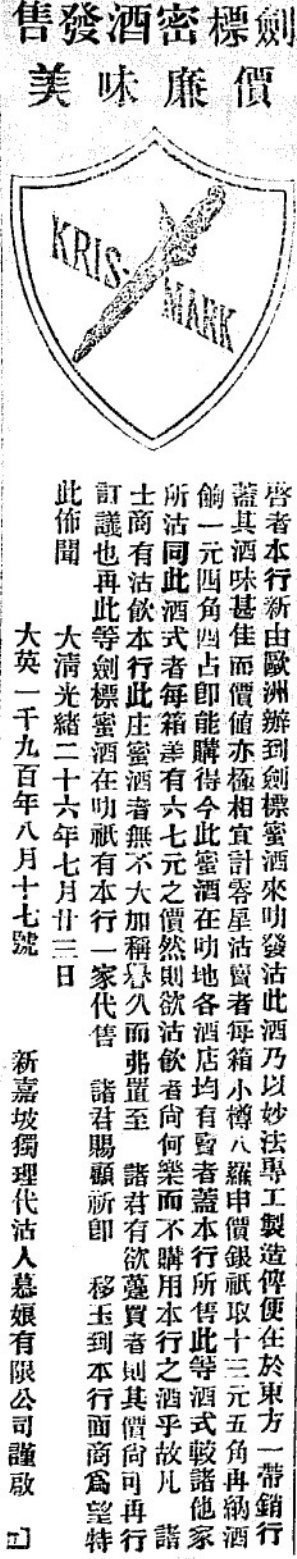 劍標密酒發售
價廉味美
KRIS-MARK
啓者本行新由歐洲辦到劍標蜜酒來叻發沽此酒乃以妙法專工製造俾便在於東方一帶銷行
蓋其酒味甚佳而價値亦極相宜計零星沽賣者每箱小樽八羅申價銀祇取十三元五角再納酒
餉一元四角四占卽能購得今此蜜酒在叻地各酒店均有賣者蓋本行所售此等酒式較諸他家
所沽同此酒式者每箱差有六七元之價然則欲沽飲者尙何樂而不購用本行之酒乎故凡 諸
士商有沽飲本行此庄蜜酒者無不大加稱譽久而弗置至 諸君有欲躉買者則其價尙可再行
訂議也再此等劍標蜜酒在叻祇有本行一家代售 諸君賜顧祈卽 移玉到本行面商爲望特
此佈聞 大淸光緖二十六年七月廿三日
大英一千九百年八月十七號 新嘉坡獨理代沽人慕娘有限公司謹啟